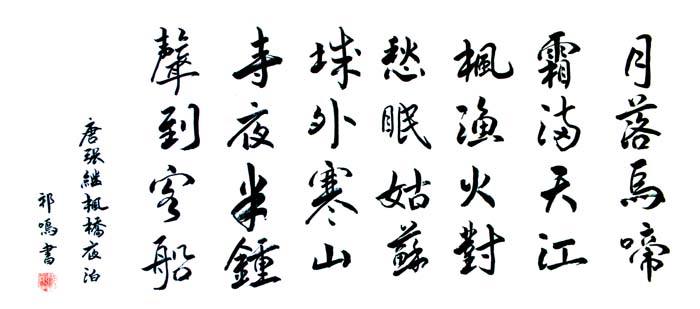 月落烏啼
霜滿天江
楓漁火對
愁眠姑蘇
城外寒山
寺夜半鍾
聲到客船
唐張繼楓橋夜泊
祁鳴書